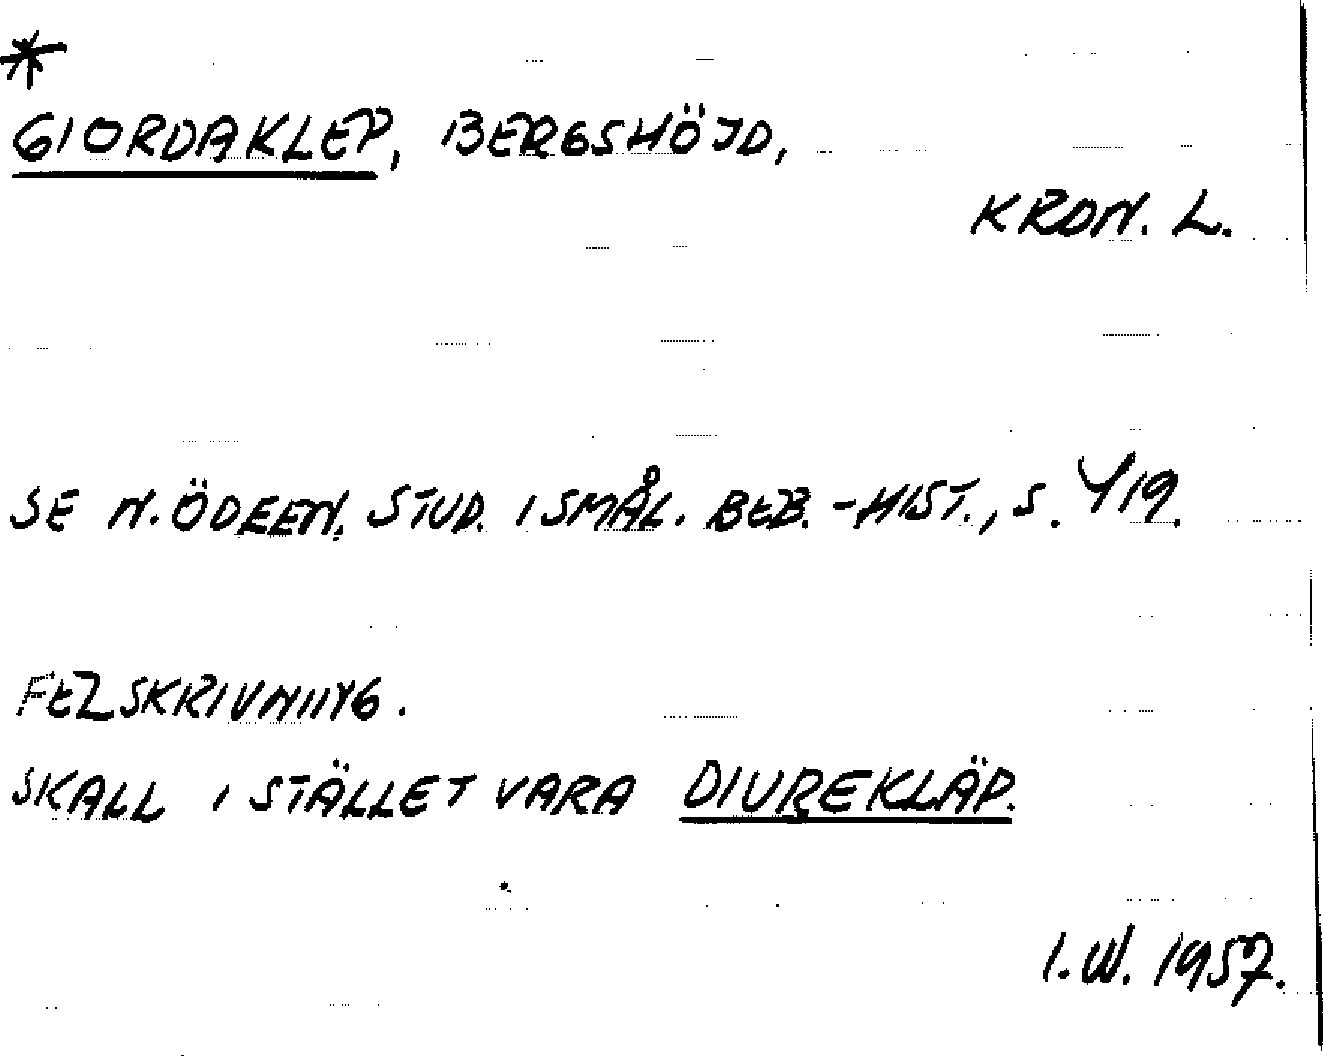 *
GIORDAKLEP, BERGSHÖJD,
KRON. L.
SE N. ÖDEEN. STUD. I SMÅL. BEB.-HIST., S. 419.
FELSKRIVNING.
SKALL I STÄLLET VARA DIUREKLÄP.
I.W. 1957.